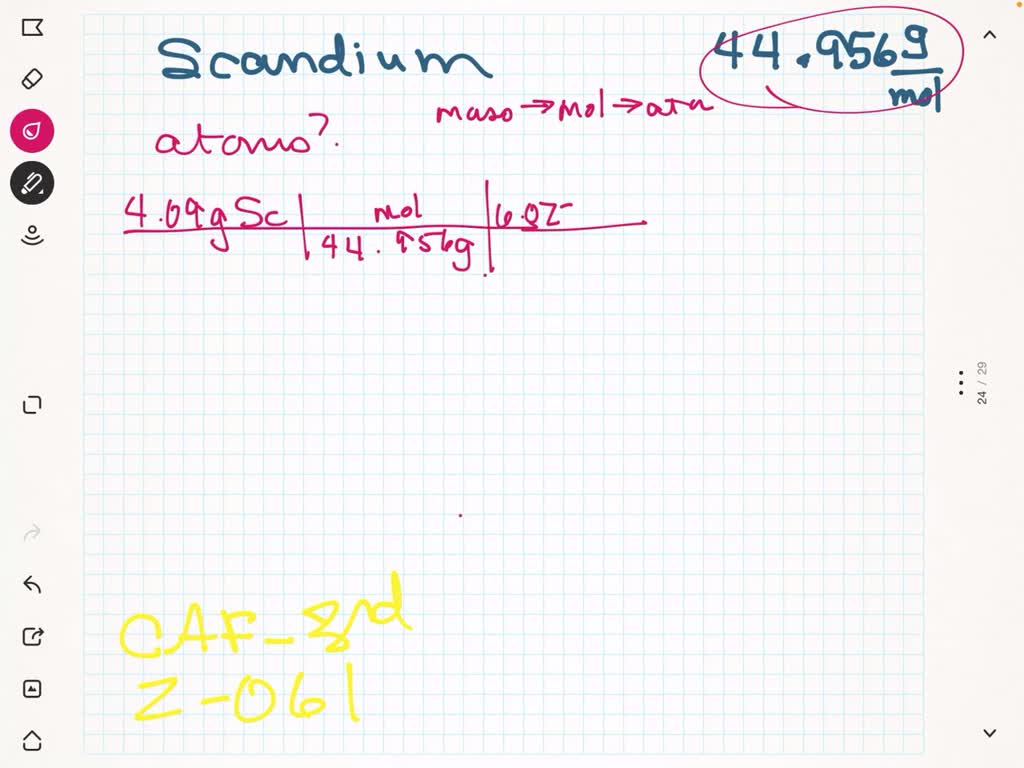 Scandium
44.956 g
mol
mass → mol → atm
atoms?
4.09g Sc | mol | 6.02
44.956g
24 / 29
CAF-3rd
Z-061